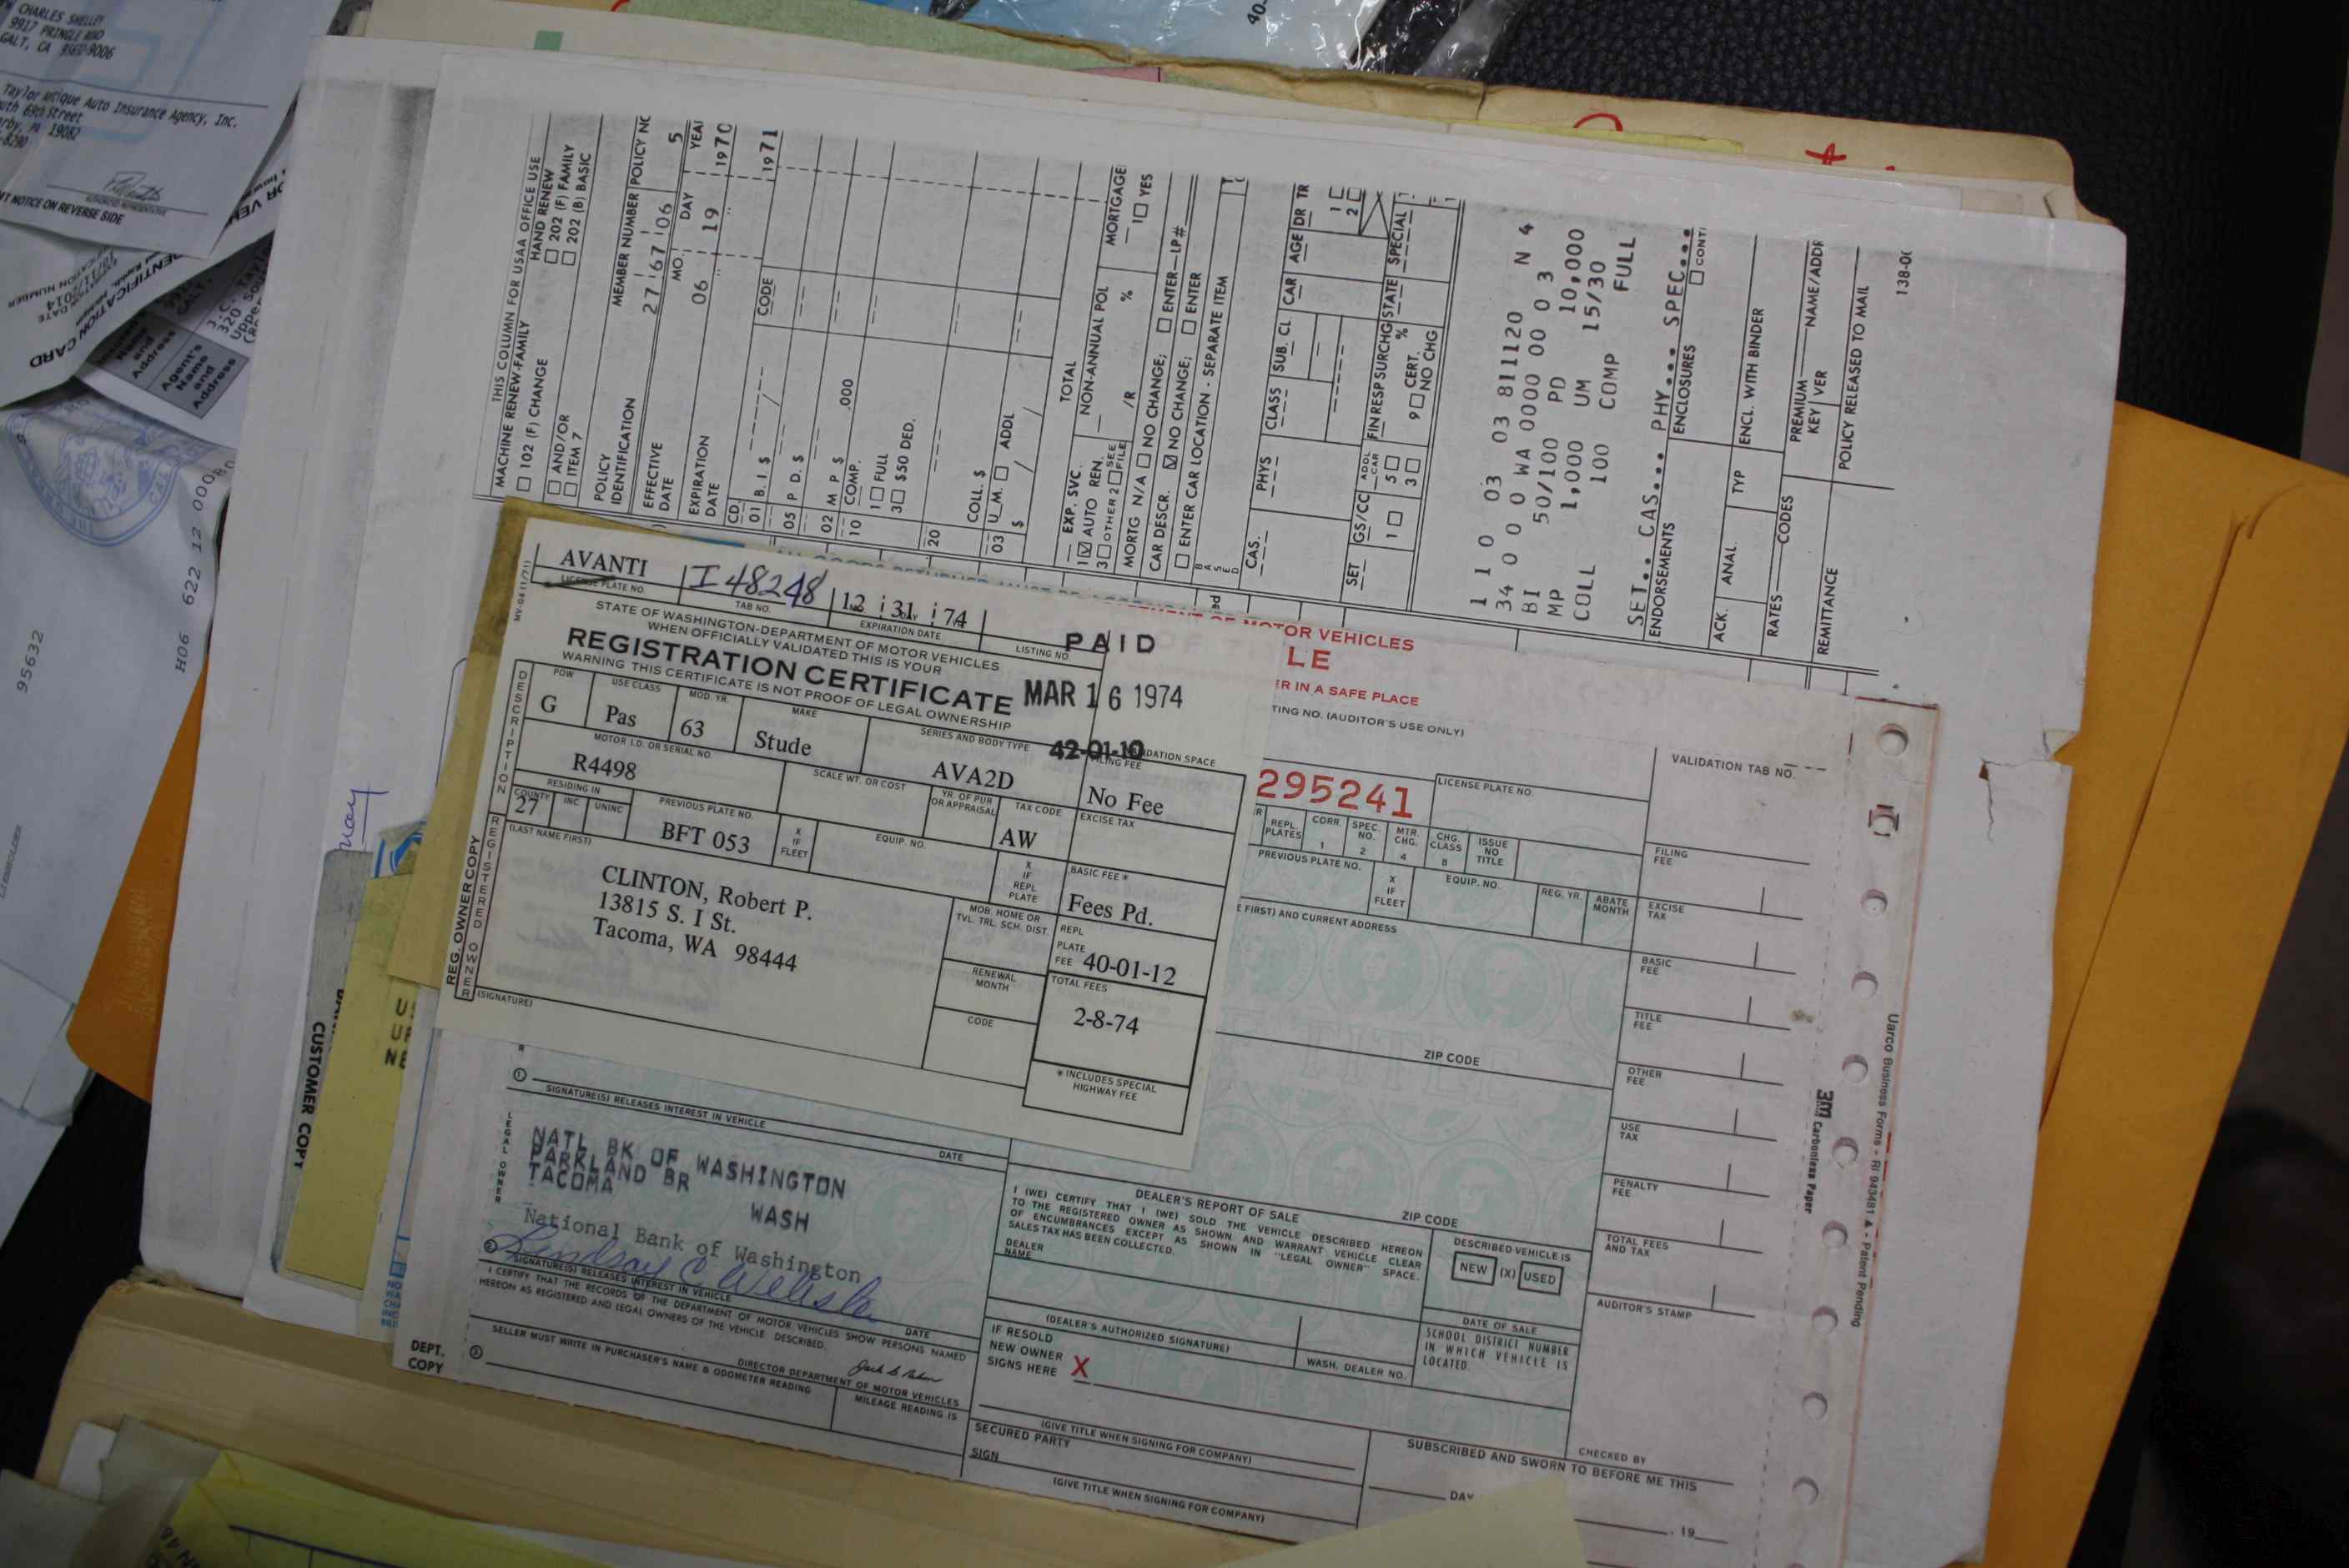 CHARLES SHELLEY
9917 PRINGLE
GALT, CA
Auto Insurance Agency, Inc.
69th Street
PA 19082
AUTHORIZED REPRESENTATIVE
NOTICE ON REVERSE SIDE
CARD
Agent's
Name
and
Address
H06 622 12 000
95632
THIS COLUMN FOR USAA OFFICE USE
MACHINE RENEW-FAMILY
HAND RENEW
☐ 102 (F) CHANGE
☐ 202 (F) FAMILY
☐ AND/OR
☐ 202 (B) BASIC
☐ ITEM 7
POLICY
IDENTIFICATION
MEMBER NUMBER
POLICY NO
27 67 06
5
EFFECTIVE
DATE
MO.
DAY
YEAR
06
19
1970
EXPIRATION
DATE
"
"
1971
CD.
CODE
01 B. I. $
05 P D. $
02 M P $
.000
10 COMP.
1 ☐ FULL
3 ☐ $50 DED.
20
COLL. $
03 U_M. ☐ ADDL
$
TOTAL
EXP. SVC.
NON-ANNUAL POL
MORTGAGE
1 ☑ AUTO REN.
3 ☐ OTHER 2 ☐ SEE FILE
/R
%
1 ☐ YES
MORTG N/A ☐ NO CHANGE; ☐ ENTER—LP#
CAR DESCR. ☑ NO CHANGE; ☐ ENTER
☐ ENTER CAR LOCATION - SEPARATE ITEM
BASED
CAS.
PHYS
CLASS
SUB. CL.
CAR
AGE
DR TR
1 ☐
2 ☐
SET
GS/CC
ADDL CAR
FIN RESP SURCHG
STATE
SPECIAL
1 ☐
5 ☐
3 ☐
%
9 ☐ CERT.
☐ NO CHG
1 1 0 03 03 03 811120 N 4
34 0 0 0 0 WA 0000 00 0 3
BI 50/100 PD 10,000
MP 1,000 UM 15/30
COLL 100 COMP FULL
SET.. CAS... PHY... SPEC...
ENDORSEMENTS
ENCLOSURES
☐ CONT
ACK.
ANAL
TYP
ENCL. WITH BINDER
RATES
CODES
PREMIUM
NAME/ADDR
KEY
VER
REMITTANCE
POLICY RELEASED TO MAIL
MV-04 (1/71)
AVANTI
I 48248
12 31 74
LICENSE PLATE NO.
TAB NO.
EXPIRATION DATE
LISTING NO.
STATE OF WASHINGTON-DEPARTMENT OF MOTOR VEHICLES
WHEN OFFICIALLY VALIDATED THIS IS YOUR
REGISTRATION CERTIFICATE
WARNING THIS CERTIFICATE IS NOT PROOF OF LEGAL OWNERSHIP
PAID
MAR 16 1974
42-01-10
VALIDATION SPACE
DESCRIPTION
POW
USE CLASS
MOD. YR.
MAKE
SERIES AND BODY TYPE
FILING FEE
G
Pas
63
Stude
AVA2D
No Fee
MOTOR I.D. OR SERIAL NO.
SCALE WT. OR COST
YR. OF PUR OR APPRAISAL
TAX CODE
EXCISE TAX
R4498
AW
RESIDING IN
COUNTY
INC
UNINC
PREVIOUS PLATE NO.
X IF FLEET
EQUIP. NO.
X IF REPL PLATE
BASIC FEE *
27
BFT 053
Fees Pd.
(LAST NAME FIRST)
REG. OWNER COPY
REGISTERED OWNER
CLINTON, Robert P.
13815 S. I St.
Tacoma, WA 98444
MOB. HOME OR
TVL. TRL. SCH. DIST.
REPL
PLATE
FEE
40-01-12
RENEWAL
MONTH
TOTAL FEES
2-8-74
CODE
(SIGNATURE)
* INCLUDES SPECIAL
HIGHWAY FEE
MOTOR VEHICLES
LE
ER IN A SAFE PLACE
TING NO. (AUDITOR'S USE ONLY)
295241
LICENSE PLATE NO.
VALIDATION TAB NO.
REPL. PLATES
CORR. 1
SPEC. NO. 2
MTR. CHG. 4
CHG. CLASS 8
ISSUE NO TITLE
PREVIOUS PLATE NO.
X IF FLEET
EQUIP. NO.
REG. YR.
ABATE MONTH
E FIRST) AND CURRENT ADDRESS
ZIP CODE
FILING FEE
EXCISE TAX
BASIC FEE
TITLE FEE
OTHER FEE
USE TAX
PENALTY FEE
TOTAL FEES AND TAX
AUDITOR'S STAMP
CHECKED BY
LEGAL OWNER
① SIGNATURE(S) RELEASES INTEREST IN VEHICLE
DATE
NATL BK OF WASHINGTON
PARKLAND BR
TACOMA WASH
National Bank of Washington
② SIGNATURE(S) RELEASES INTEREST IN VEHICLE
DATE
I CERTIFY THAT THE RECORDS OF THE DEPARTMENT OF MOTOR VEHICLES SHOW PERSONS NAMED
HEREON AS REGISTERED AND LEGAL OWNERS OF THE VEHICLE DESCRIBED.
DIRECTOR DEPARTMENT OF MOTOR VEHICLES
SELLER MUST WRITE IN PURCHASER'S NAME & ODOMETER READING
MILEAGE READING IS
③
DEPT.
COPY
DEALER'S REPORT OF SALE
ZIP CODE
I (WE) CERTIFY THAT I (WE) SOLD THE VEHICLE DESCRIBED HEREON
TO THE REGISTERED OWNER AS SHOWN AND WARRANT VEHICLE CLEAR
OF ENCUMBRANCES EXCEPT AS SHOWN IN "LEGAL OWNER" SPACE.
SALES TAX HAS BEEN COLLECTED.
DESCRIBED VEHICLE IS
NEW (X) USED
DEALER
NAME
DATE OF SALE
(DEALER'S AUTHORIZED SIGNATURE)
WASH. DEALER NO.
SCHOOL DISTRICT NUMBER
IN WHICH VEHICLE IS
LOCATED.
IF RESOLD
NEW OWNER
SIGNS HERE X
(GIVE TITLE WHEN SIGNING FOR COMPANY)
SECURED PARTY
SIGN
(GIVE TITLE WHEN SIGNING FOR COMPANY)
SUBSCRIBED AND SWORN TO BEFORE ME THIS
DAY
, 19
CUSTOMER COPY
3M Carbonless Paper
Uarco Business Forms - RI 943481 ▲ - Patent Pending